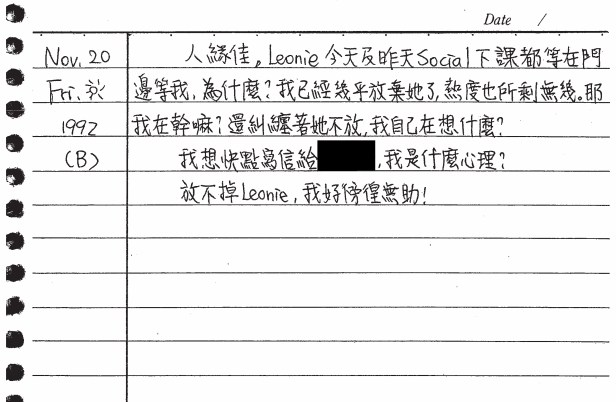 Date /
Nov. 20 人緣佳。Leonie 今天及昨天Social下課都等在門
Fri. 邊等我,為什麼?我已經幾乎放棄她了,熱度也所剩無幾。耶
1992 我在幹嘛?還糾纏著她不放,我自己在想什麼?
(B) 我想快點寫信給 ,我是什麼心理?
放不掉Leonie,我好徬徨無助!